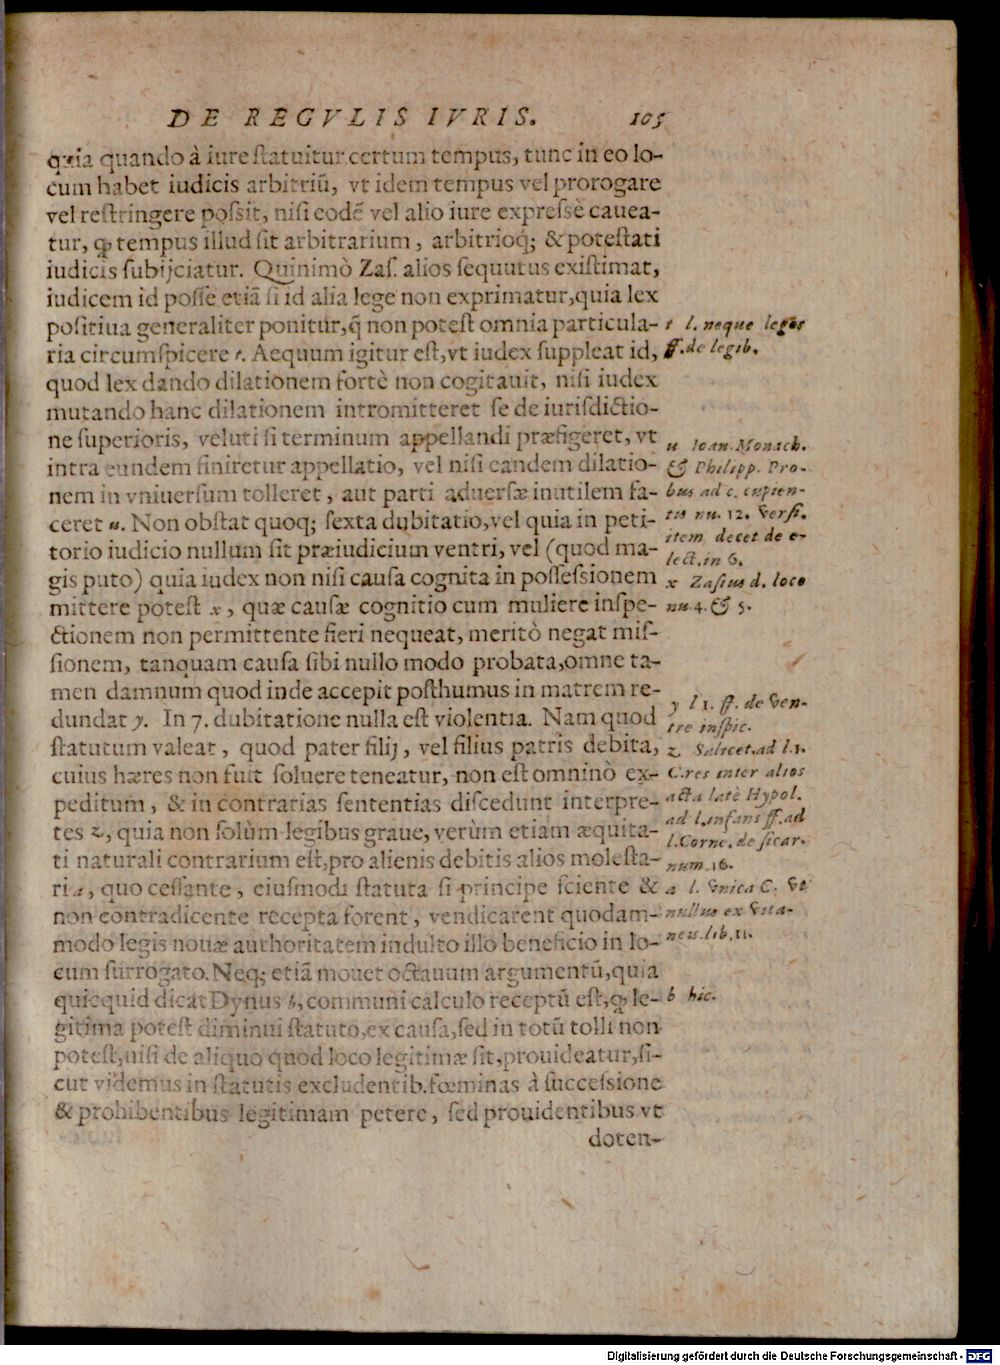 DE REGVLIS IVRIS. 105
quia quando à iure ſtatuitur certum tempus, tunc in eo lo-
cum habet iudicis arbitriū, vt idem tempus vel prorogare
vel reſtringere poſsit, niſi eodē vel alio iure expreſsè cauea-
tur, ꝙ tempus illud ſit arbitrarium, arbitrioq́; & poteſtati
iudicis ſubijciatur. Quinimò Zaſ. alios ſequutus exiſtimat,
iudicem id poſſe etiā ſi id alia lege non exprimatur, quia lex
poſitiua generaliter ponitur, q̄ non poteſt omnia particula-
ria circumſpicere t. Aequum igitur eſt, vt iudex ſuppleat id,
quod lex dando dilationem fortè non cogitauit, niſi iudex
mutando hanc dilationem intromitteret ſe de iuriſdictio-
ne ſuperioris, veluti ſi terminum appellandi præfigeret, vt
intra eundem finiretur appellatio, vel niſi eandem dilatio-
nem in vniuerſum tolleret, aut parti aduerſæ inutilem fa-
ceret u. Non obſtat quoq; ſexta dubitatio, vel quia in peti-
torio iudicio nullum ſit præiudicium ventri, vel (quod ma-
gis puto) quia iudex non niſi cauſa cognita in poſſeſsionem
mittere poteſt x, quæ cauſæ cognitio cum muliere inſpe-
ctionem non permittente fieri nequeat, meritò negat miſ-
ſionem, tanquam cauſa ſibi nullo modo probata, omne ta-
men damnum quod inde accepit poſthumus in matrem re-
dundat y. In 7. dubitatione nulla eſt violentia. Nam quod
ſtatutum valeat, quod pater filij, vel filius patris debita,
cuius hæres non fuit ſoluere teneatur, non eſt omninò ex-
peditum, & in contrarias ſententias diſcedunt interpre-
tes z, quia non ſolùm legibus graue, verùm etiam æquita-
ti naturali contrarium eſt, pro alienis debitis alios moleſta-
ri a, quo ceſſante, eiuſmodi ſtatuta ſi principe ſciente &
non contradicente recepta forent, vendicarent quodam-
modo legis nouæ authoritatem indulto illo beneficio in lo-
cum ſurrogato. Neq; etiā mouet octauum argumentū, quia
quicquid dicat Dynus b, communi calculo receptū eſt, ꝙ le-
gitima poteſt diminui ſtatuto, ex cauſa, ſed in totū tolli non
poteſt, niſi de aliquo quod loco legitimæ ſit, prouideatur, ſi-
cut videmus in ſtatutis excludentib. fœminas à ſucceſsione
& prohibentibus legitimam petere, ſed prouidentibus vt
doten-
t l. neque leges
ff. de legib.
u Ioan. Monach.
& Philipp. Pro-
bus ad c. cupien-
tis nu. 12. verſi.
item decet de e-
lect. in 6.
x Zaſius d. loco
nu. 4. & 5.
y l 1. ff. de ven-
tre inſpic.
z Salicet. ad l. 1.
C. res inter alios
acta latè Hypol.
ad l. infans ff. ad
l. Corne. de ſicar.
num. 16.
a l. vnica C. vt
nullus ex vita-
neis. lib. 11.
b hic.
Digitalisierung gefördert durch die Deutsche Forschungsgemeinschaft - DFG